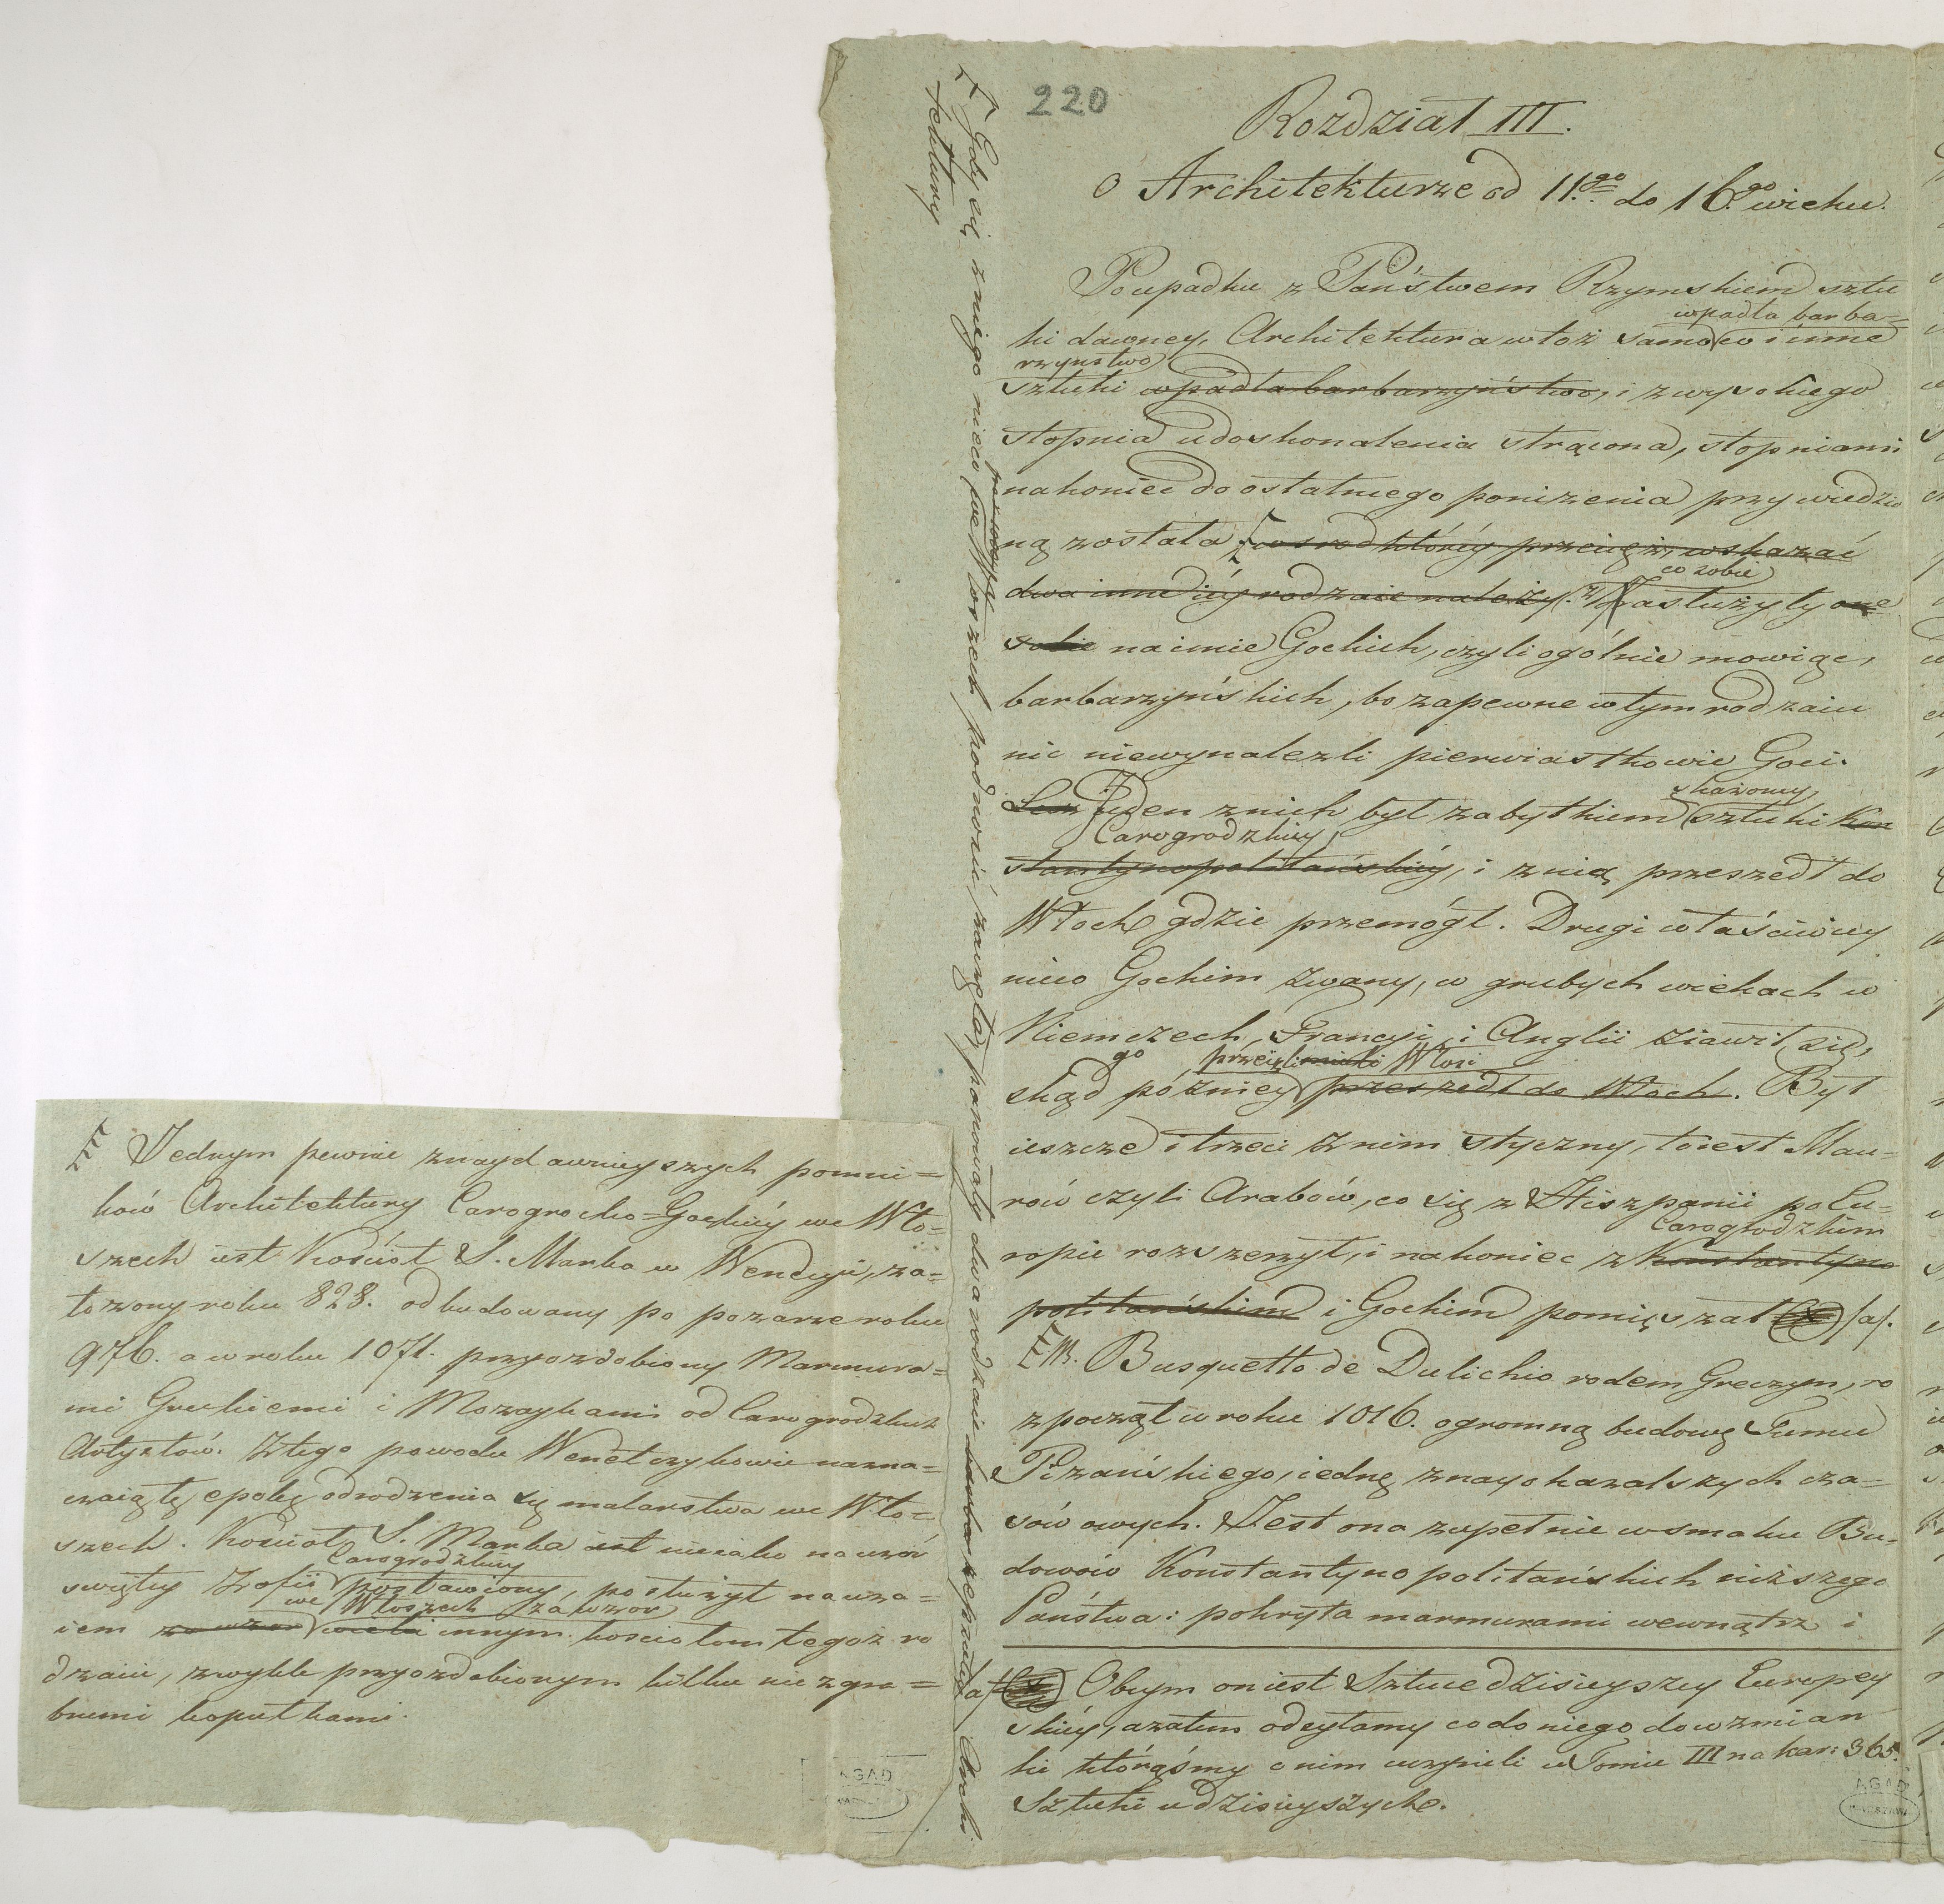 220
Rozdział III.
o Architekturze od 11.go do 16.go wieku.
Po upadku z Państwem Rzymskiem sztu
wpadła barba=
ki dawney, Architektura w toż samo co i inne
rzyństwo
sztuki wpadła barbarzyństwo, i z wysokiego
stopnia udoskonalenia strącona, stopniami
nakoniec do ostatniego poniżenia przywiedzio
ną została, wsrod któréy przeciąż, wskazać
co sobie
dwa inne iéy rodzaie należy. zasłużyły one
sobie na imie Gockich, czyli ogólnie mowiąc,
barbarzyńskich, bo zapewne w tym rodzaiu
nic niewynaleźli pierwiastkowie Goci.
skażoney
Lecz Jeden z nich był zabytkiem sztuki Kon
Carogrodzkiey
stantynopolitańskiéy, i z nią przeszedł do
Włoch gdzie przemógł. Drugi właściwiey
nieco Gockim zwany, w grubych wiekach w
Niemczech, Francyi i Anglii ziawił się,
go przeięli mieli Włosi
skąd późniey przeszedł do Włoch. Był
ieszcze i trzeci z nim styczny, toiest Mau=
rów czyli Arabów, co się z Hiszpanii po Eu=
Carogrodzkim
ropie rozszerzył, i nakoniec z Konstantyno
politańskim i Gockim pomięszał /a/.
Busquetto de Dulichio rodem Greczyn, ro
zpoczął w roku 1016. ogromną budowę Tumu
Pizańskiego, iednę z nayokazalszych cza=
sów owych. Jest ona zupełnie w smaku Bu=
dowów Konstantynopolitańskich niższego
Państwa: pokryta marmurami wewnątrz i
/a/ Obcym on iest Sztuce dzisieyszey Europey
skiéy, a zatem odsyłamy co do niego do wzmian
ki którąśmy o nim uczynili w Tomie III na kar: 365.
Sztuki u dzisieyszych.
Gdy się z niego nieco we Włoszech podnosić zaczęła, panowały dwa rodzaie barbarzeńskiey Archi
tektury
Jednym pewnie z naydawnieyszych pomni=
ków Architektury Carogrocko=Gockiéy we Wło=
szech iest Kościół S. Marka w Wenecyi, za=
łożony roku 828. odbudowany po pożarze roku
976. a w roku 1071. przyozdobiony Marmura=
mi Greckiemi i Mozaykami od Carogrodzkich
Artystów. Z tego powodu Wenetczykowie nazna=
czaią tę epokę odrodzenia się malarstwa we Wło=
szech. Kościół S. Marka iest nieiako na wzór
Carogrodzkiey
swiętey Zofii postawiony, posłużył nawza=
we Włoszech za wzor
iem za wzor wielu innym kosciołom tegoż ro
dzaiu, zwykle przyozdobionym kilku niezgra=
bnemi kopułkami.
AGAD
AGAD
WARSZAWA